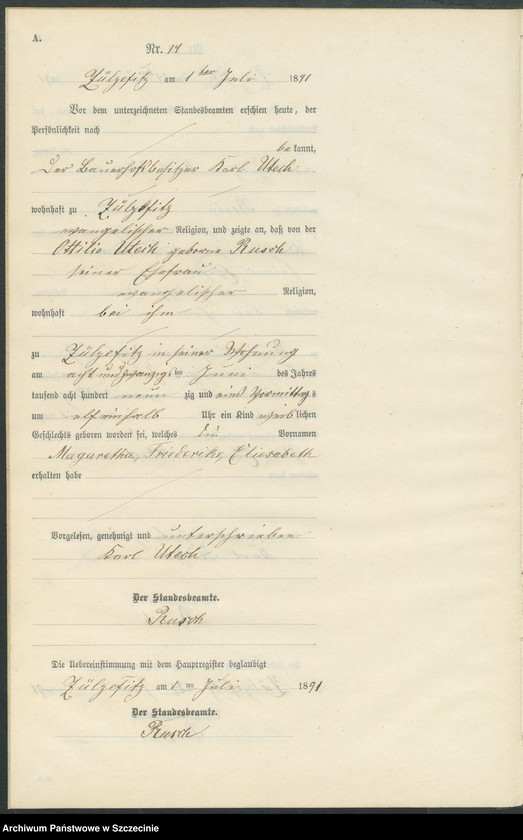 A.
Nr. 14
Zülzefitz am 1ten Juli 1891
Vor dem unterzeichneten Standesbeamten erschien heute, der
Persönlichkeit nach
bekannt,
Der Bauerhofsbesitzer Karl Utech
wohnhaft zu Zülzefitz
evangelischer Religion, und zeigte an, daß von der
Ottilie Utech geborne Rusch
seiner Ehefrau
evangelischer Religion,
wohnhaft bei ihm
zu Zülzefitz in seiner Wohnung
am acht und zwanzigsten Juni des Jahres
tausend acht hundert neun zig und eins Vormittags
um elfeinhalb Uhr ein Kind weiblichen
Geschlechts geboren worden sei, welches die Vornamen
Magaretha, Friederike, Eliesabeth
erhalten habe
Vorgelesen, genehmigt und unterschrieben
Karl Utech
Der Standesbeamte.
Rusch
Die Uebereinstimmung mit dem Hauptregister beglaubigt
Zülzefitz am 1ten Juli 1891
Der Standesbeamte.
Rusch
Archiwum Państwowe w Szczecinie